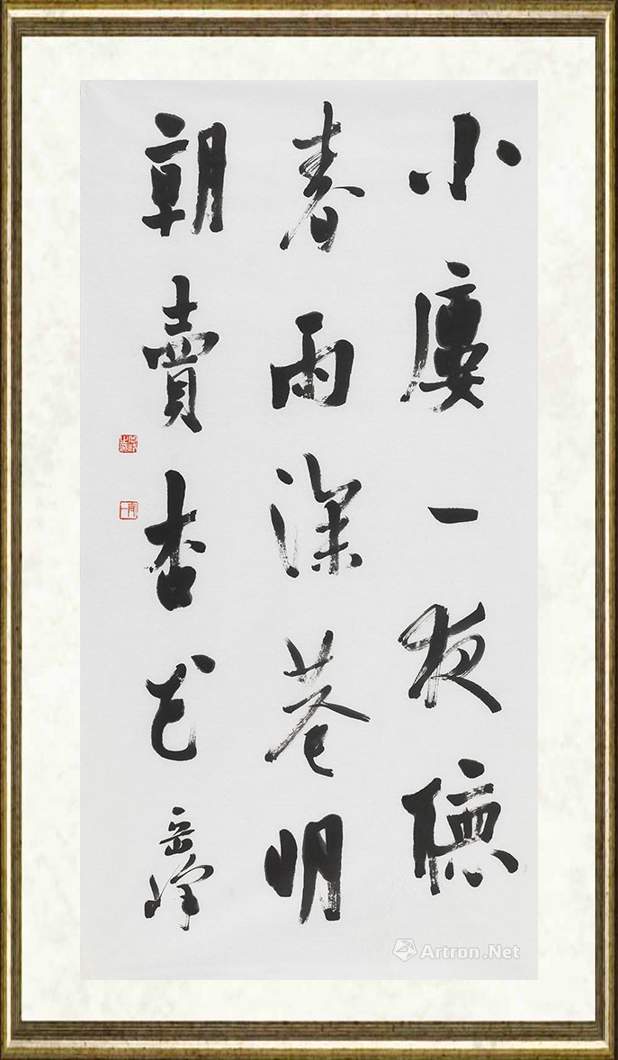 小廔一夜聽
春雨深巷明
朝賣杏花
岳峰
Artron.Net